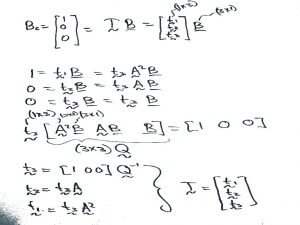 Bc = [1 0 0] = T B = [t1 t2 t3] B (3x1)
(1x3)
1 = t1 B = t3 A² B
0 = t2 B = t3 A B
0 = t3 B = t3 B
(1x3) (3x3)(3x1)
t3 [A²B AB B] = [1 0 0]
(3x3) Q
t3 = [1 0 0] Q⁻¹
t2 = t3 A
t1 = t3 A²
T = [t1 t2 t3]